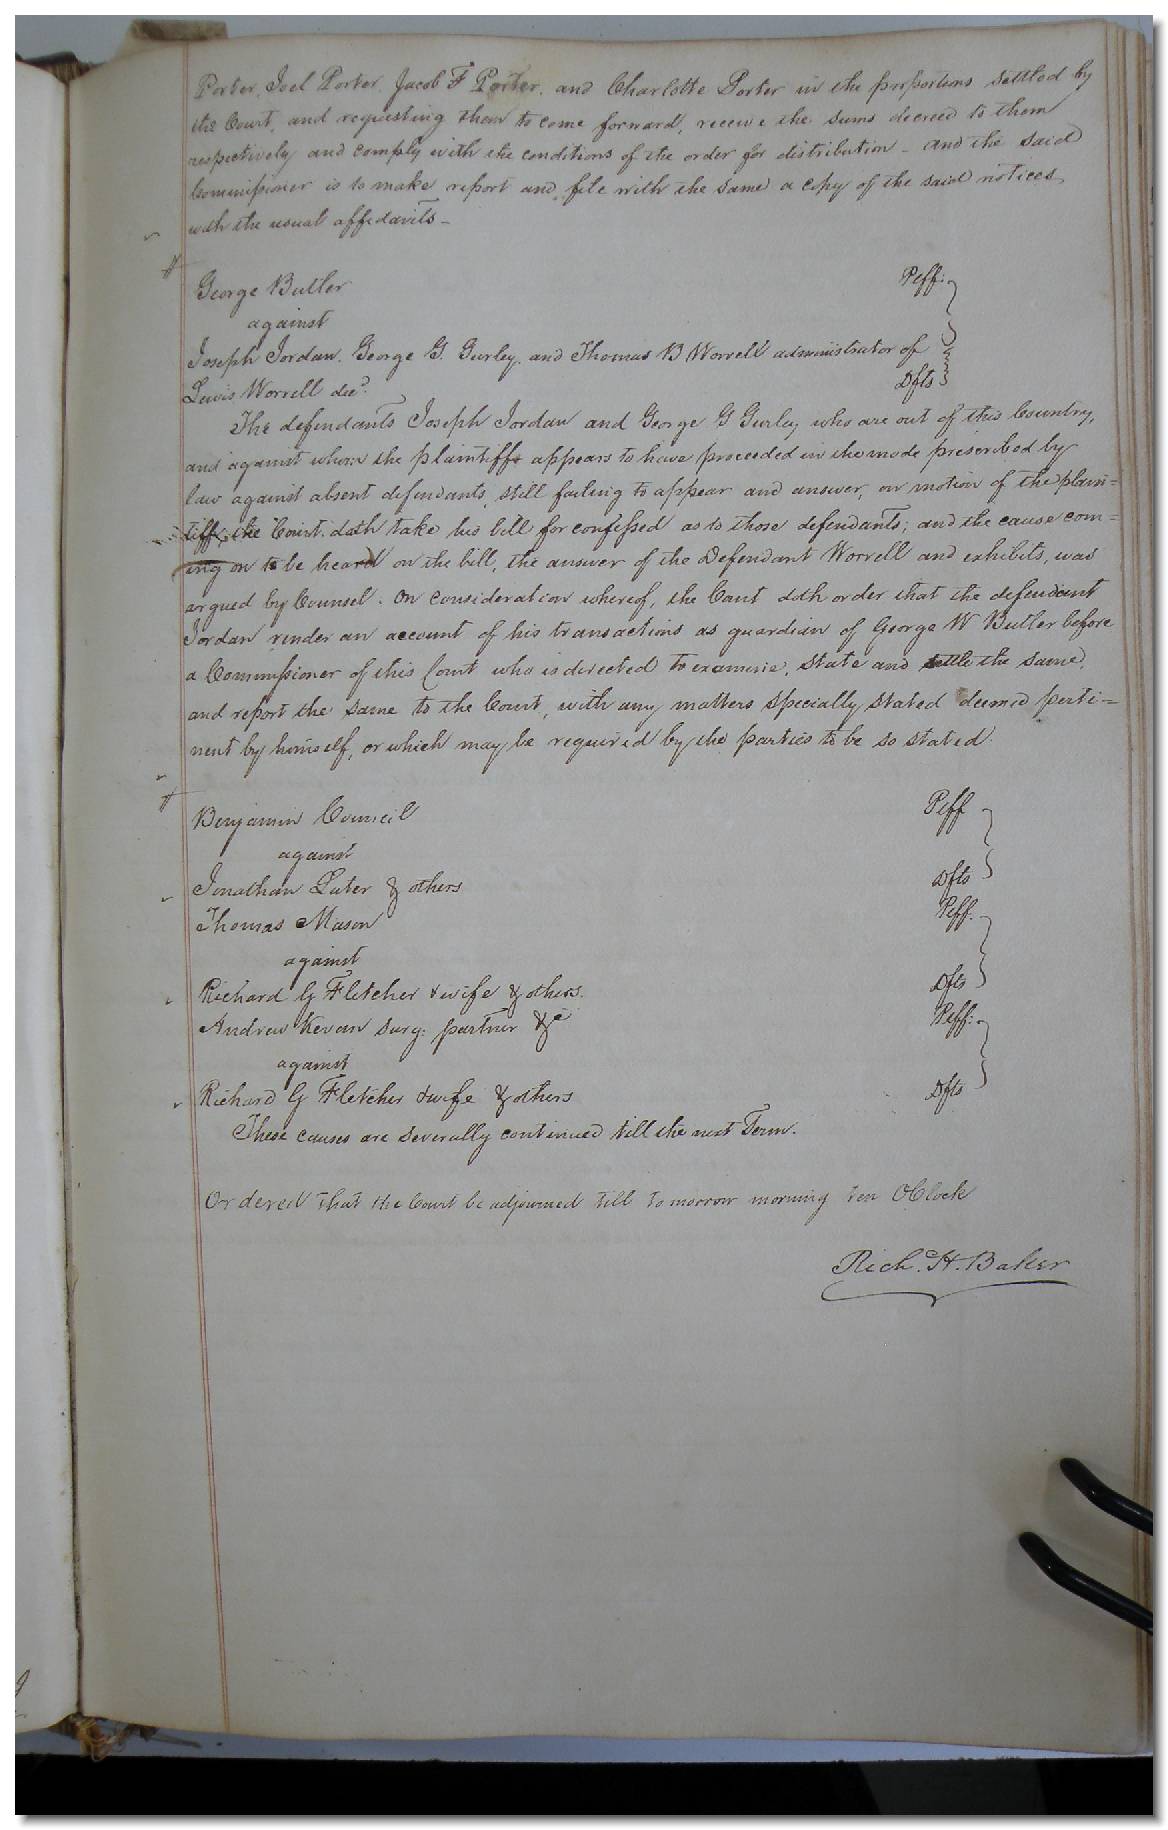 Porter, Joel Porter, Jacob F Porter, and Charlotte Porter in the proportions settled by
the Court, and requesting them to come forward, receive the sums decreed to them
respectively and comply with the conditions of the order for distribution - and the said
Commissioner is to make report and file with the same a copy of the said notices,
with the usual affidavits -
George Butler Plff:
against
Joseph Jordan, George G. Gurley, and Thomas B Worrell administrator of
Lewis Worrell decd. Dfts
The defendants Joseph Jordan and George G Gurley who are out of this Country,
and against whom the plaintiff appears to have proceeded in the mode prescribed by
law against absent defendants, still failing to appear and answer, on motion of the plain=
tiff, the Court doth take his bill for confessed as to those defendants; and the cause com=
ing on to be heard on the bill, the answer of the Defendant Worrell and exhibits, was
argued by Counsel. On consideration whereof, the Court doth order that the defendant
Jordan render an account of his transactions as guardian of George W Butler before
a Commissioner of this Court who is directed to examine, state and settle the same,
and report the same to the Court, with any matters specially stated deemed perti=
nent by himself, or which may be required by the parties to be so stated.
Benjamin Council Plff
against
Jonathan Luter & others Dfts
Thomas Mason Plff.
against
Richard G Fletcher & wife & others. Dfts
Andrew Kevan surg: partner &c Plff:
against
Richard G Fletcher & wife & others Dfts
These causes are severally continued till the next Term.
Ordered that the Court be adjourned till tomorrow morning ten OClock
Rich. H. Baker